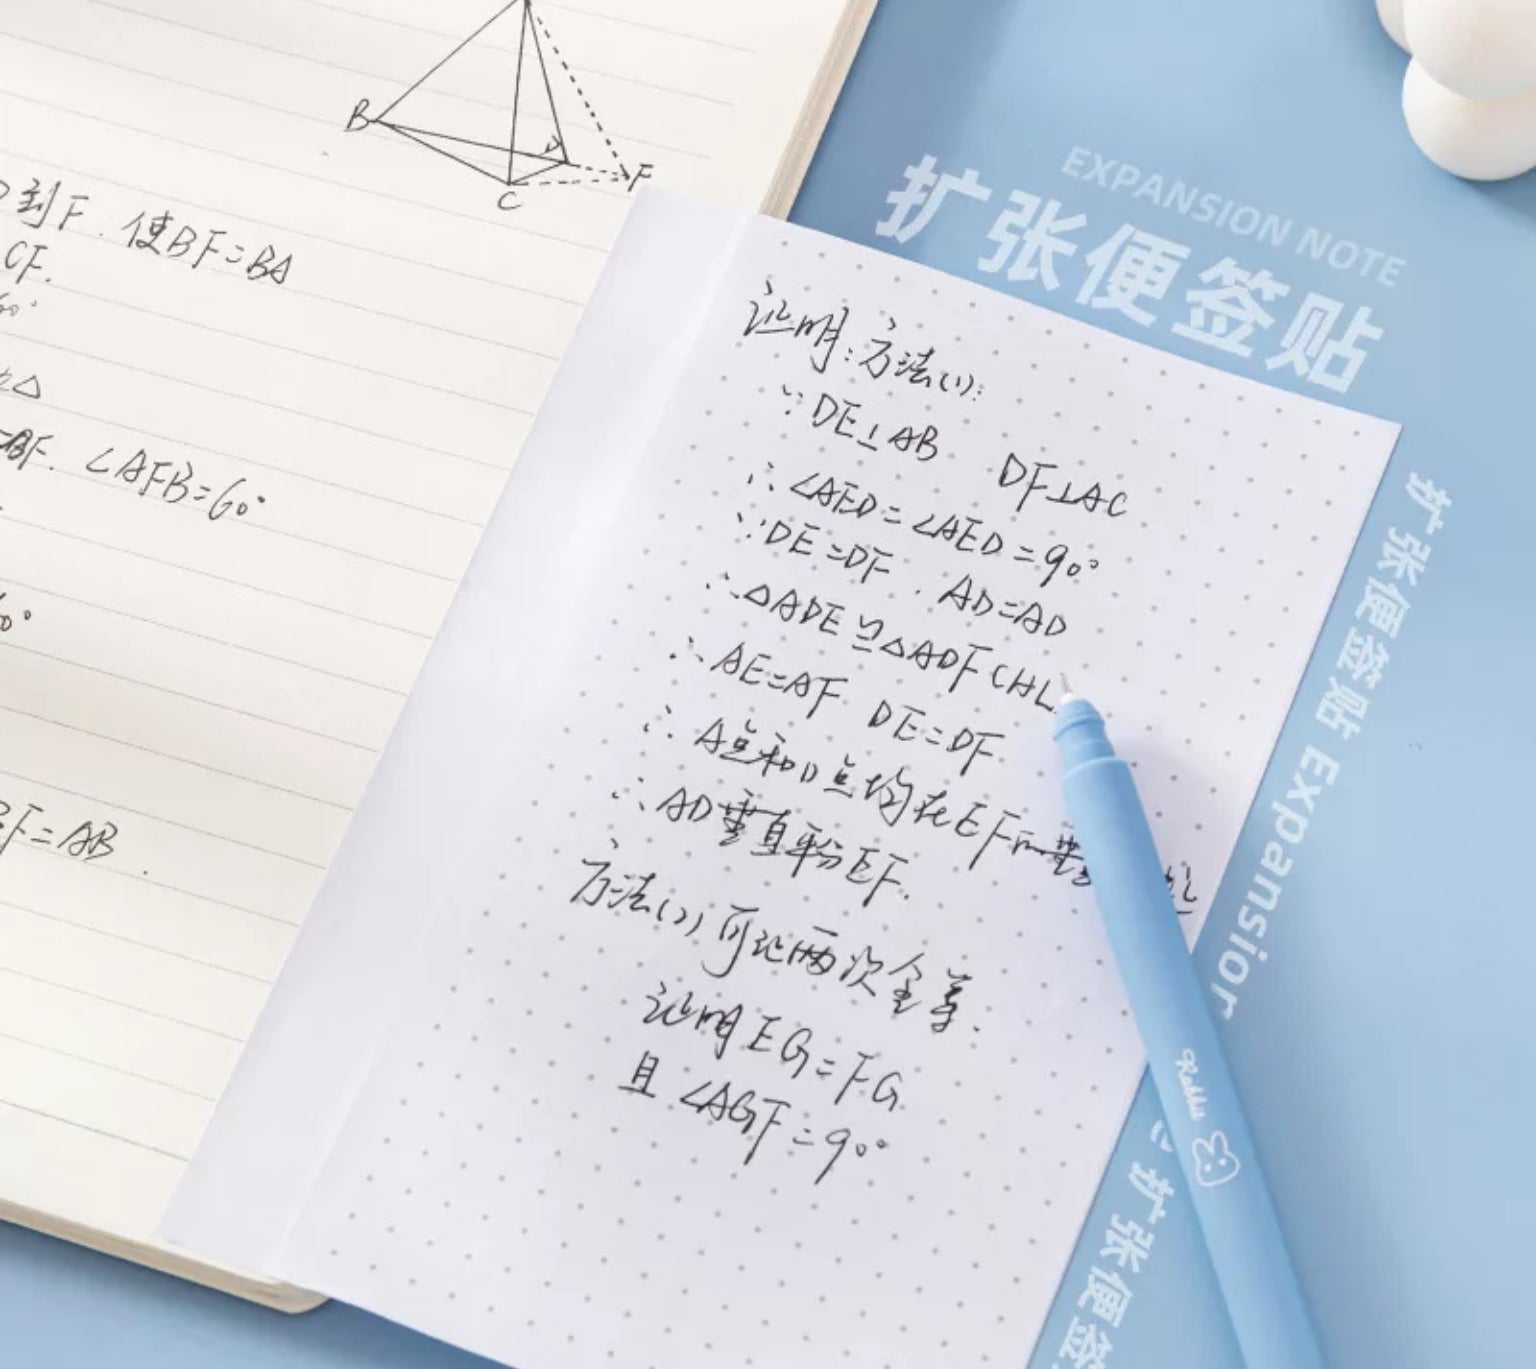 B
C
F
到F.使BF=BA
CF.
60°
△
BF. ∠AFB=60°
0°
F=AB
EXPANSION NOTE
扩张便签贴
证明:方法(1):
∵DE⊥AB DF⊥AC
∴∠AED=∠AED=90°
∵DE=DF. AD=AD
∴△ADE≌△ADF(HL
∴AE=AF DE=DF
∴A点和D点均在EF
∴AD垂直平分EF.
方法(2)可证两次全等.
证明EG=FG
且∠AGF=90°
扩张便签贴 Expansion
扩张便签
Rabbit